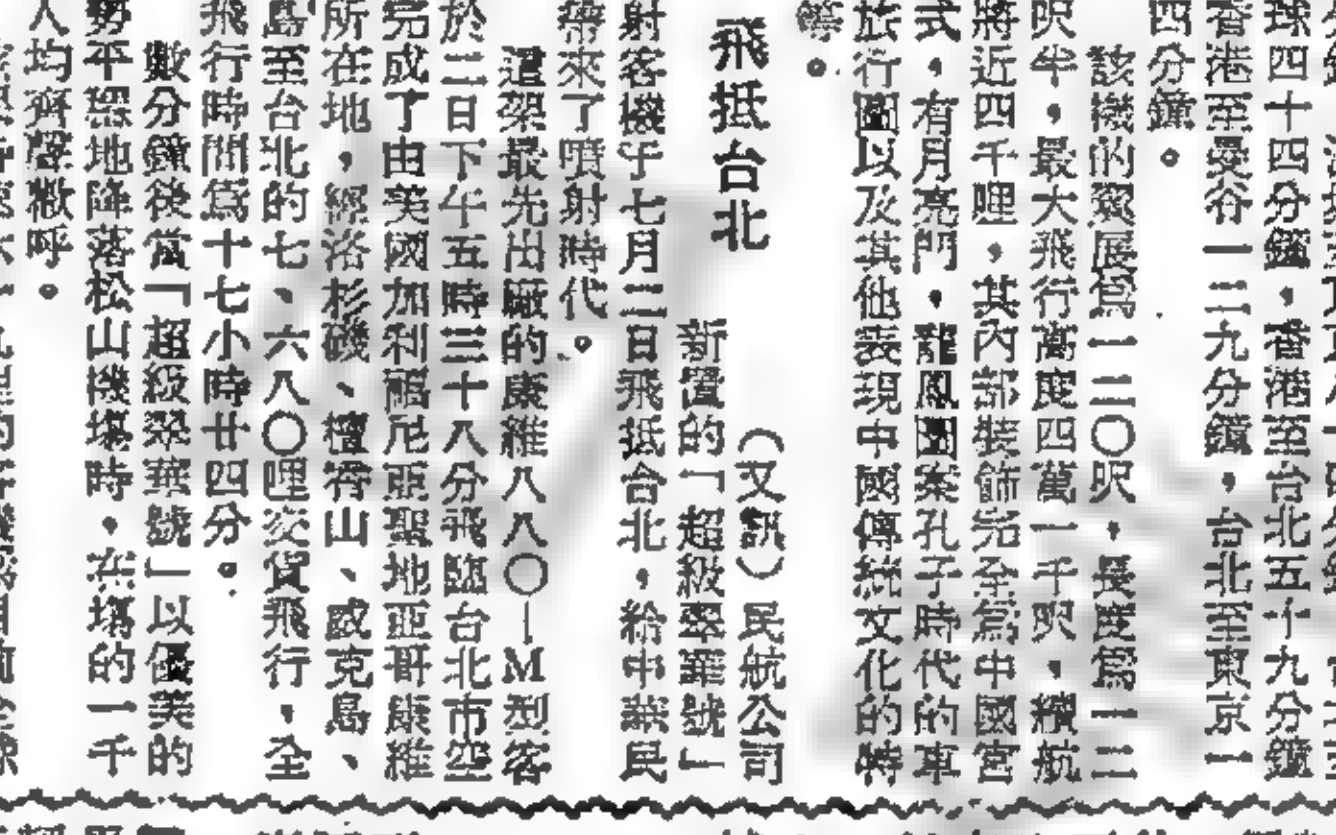 球四十四分鐘，香港至台北五十九分鐘
香港至曼谷一二九分鐘，台北至東京一
四分鐘。
該機的翼展為一二〇呎，長度為一二
呎半，最大飛行高度四萬一千呎，續航
將近四千哩，其內部裝飾完全為中國宮
式，有月亮門，龍鳳圖案孔子時代的車
旅行圖以及其他表現中國傳統文化的特
等。
飛抵台北
（又訊）民航公司
新置的「超級翠華號」
射客機于七月二日飛抵台北，給中華民
帶來了噴射時代。
這架最先出廠的康維八八〇—M型客
於二日下午五時三十八分飛臨台北市空
完成了由美國加利福尼亞聖地亞哥康維
所在地，經洛杉磯、檀香山、威克島、
島至台北的七、六八〇哩交貨飛行，全
飛行時間為十七小時廿四分。
數分鐘後當「超級翠華號」以優美的
勢平穩地降落松山機場時，在場的一千
人均齊聲歡呼。